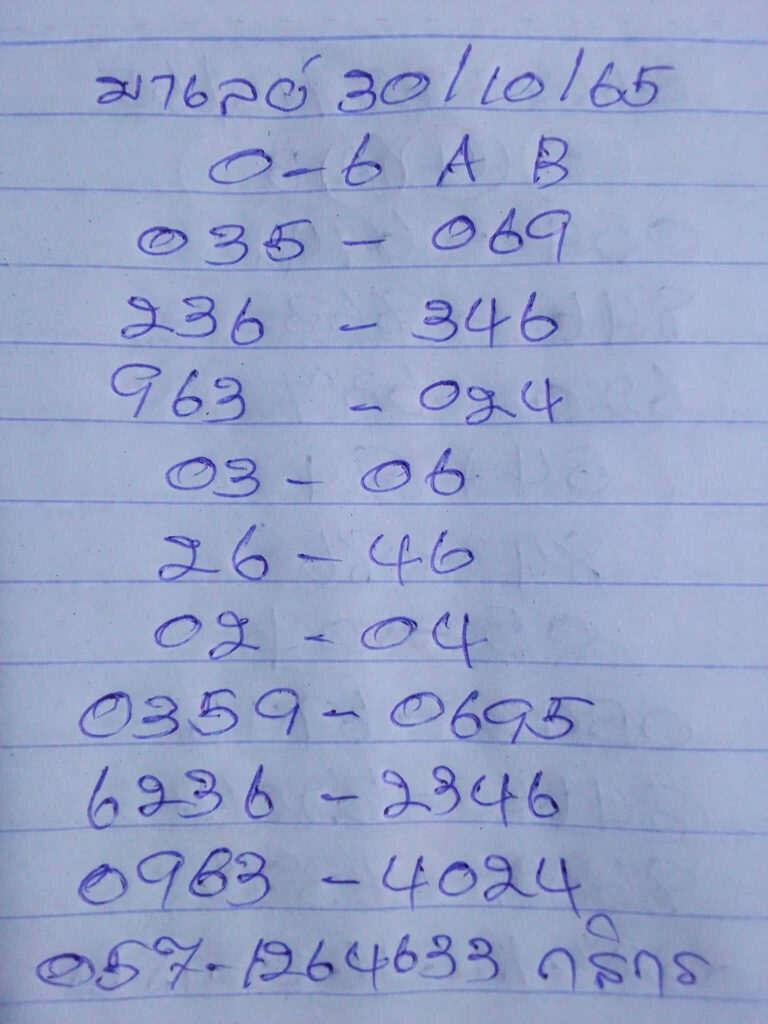 มาเลย์ 30/10/65
0-6 A B
035 - 069
236 - 346
963 - 024
03 - 06
26 - 46
02 - 04
0359 - 0695
6236 - 2346
0963 - 4024
057-1264633